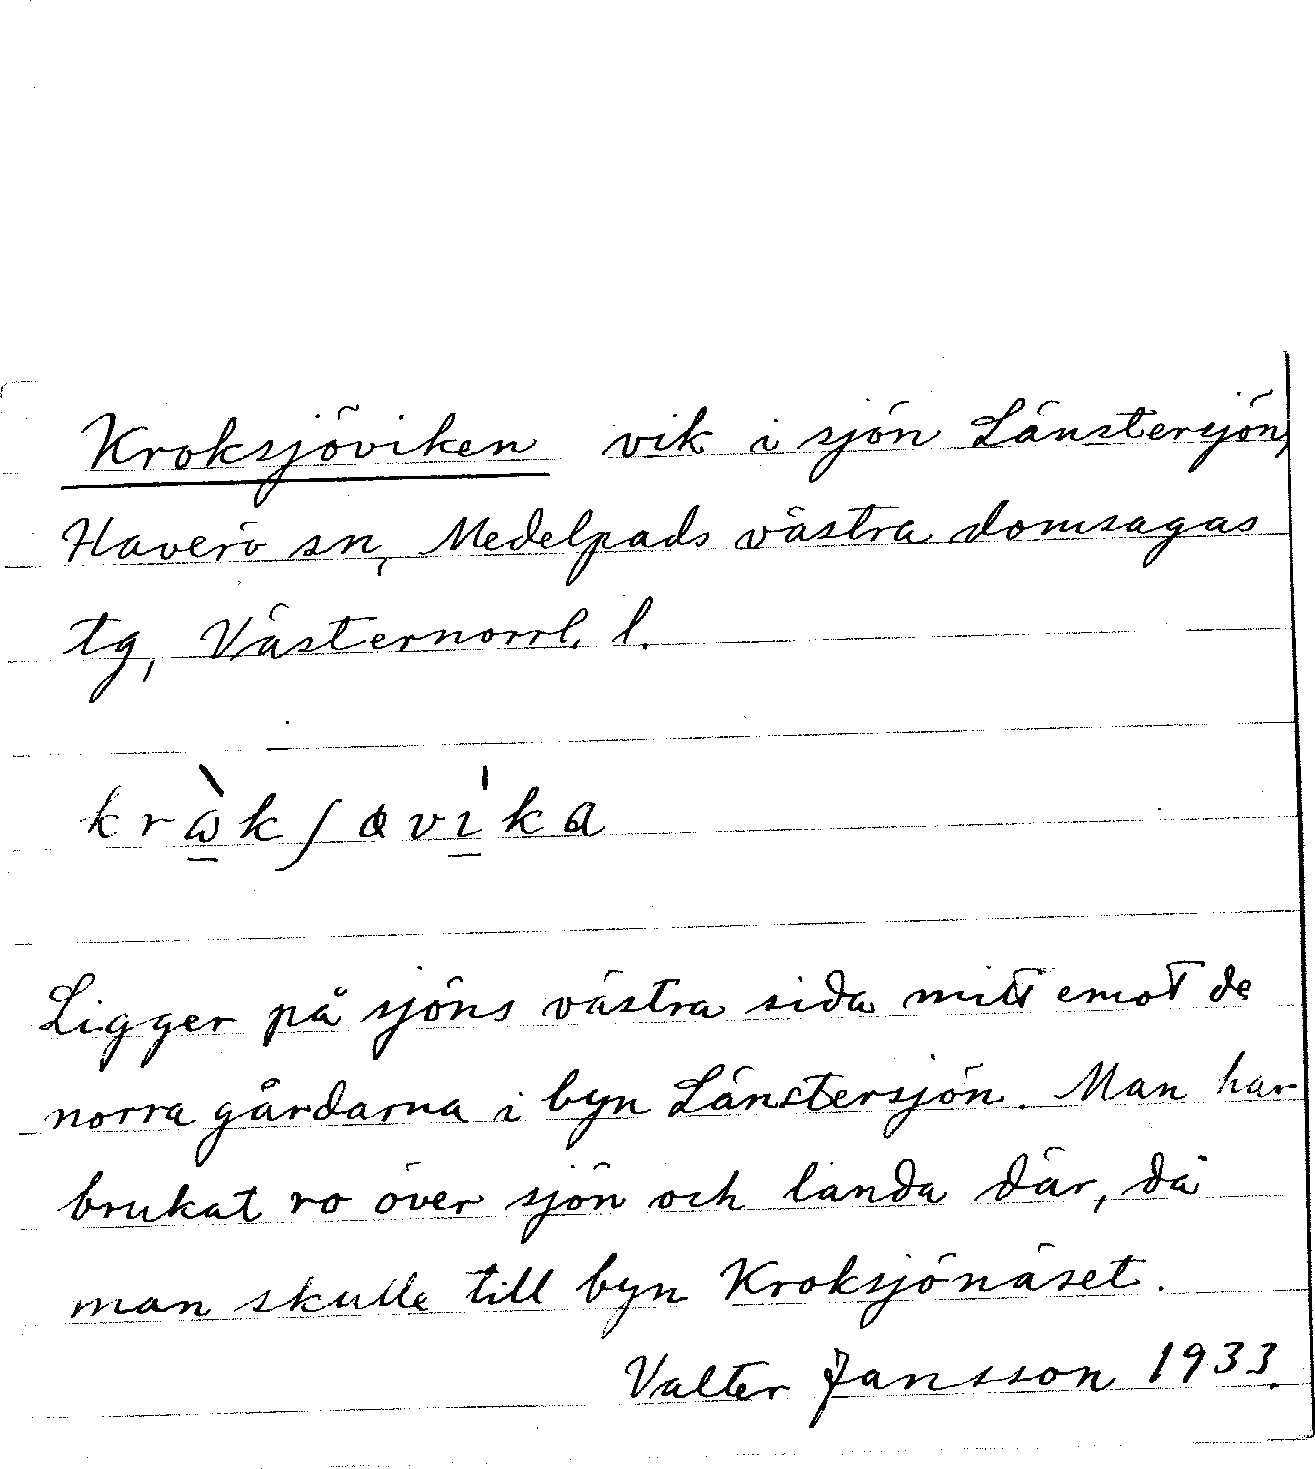 Kroksjöviken vik i sjön Länstersjön,
Haverö sn, Medelpads västra domsagas
tg, Västernorrl. l.
krὼ̲kʃɵvı̲̍ka
Ligger på sjöns västra sida mitt emot de
norra gårdarna i byn Länstersjön. Man har
brukat ro över sjön och landa där, då
man skulle till byn Kroksjönäset.
Valter Jansson 1933.